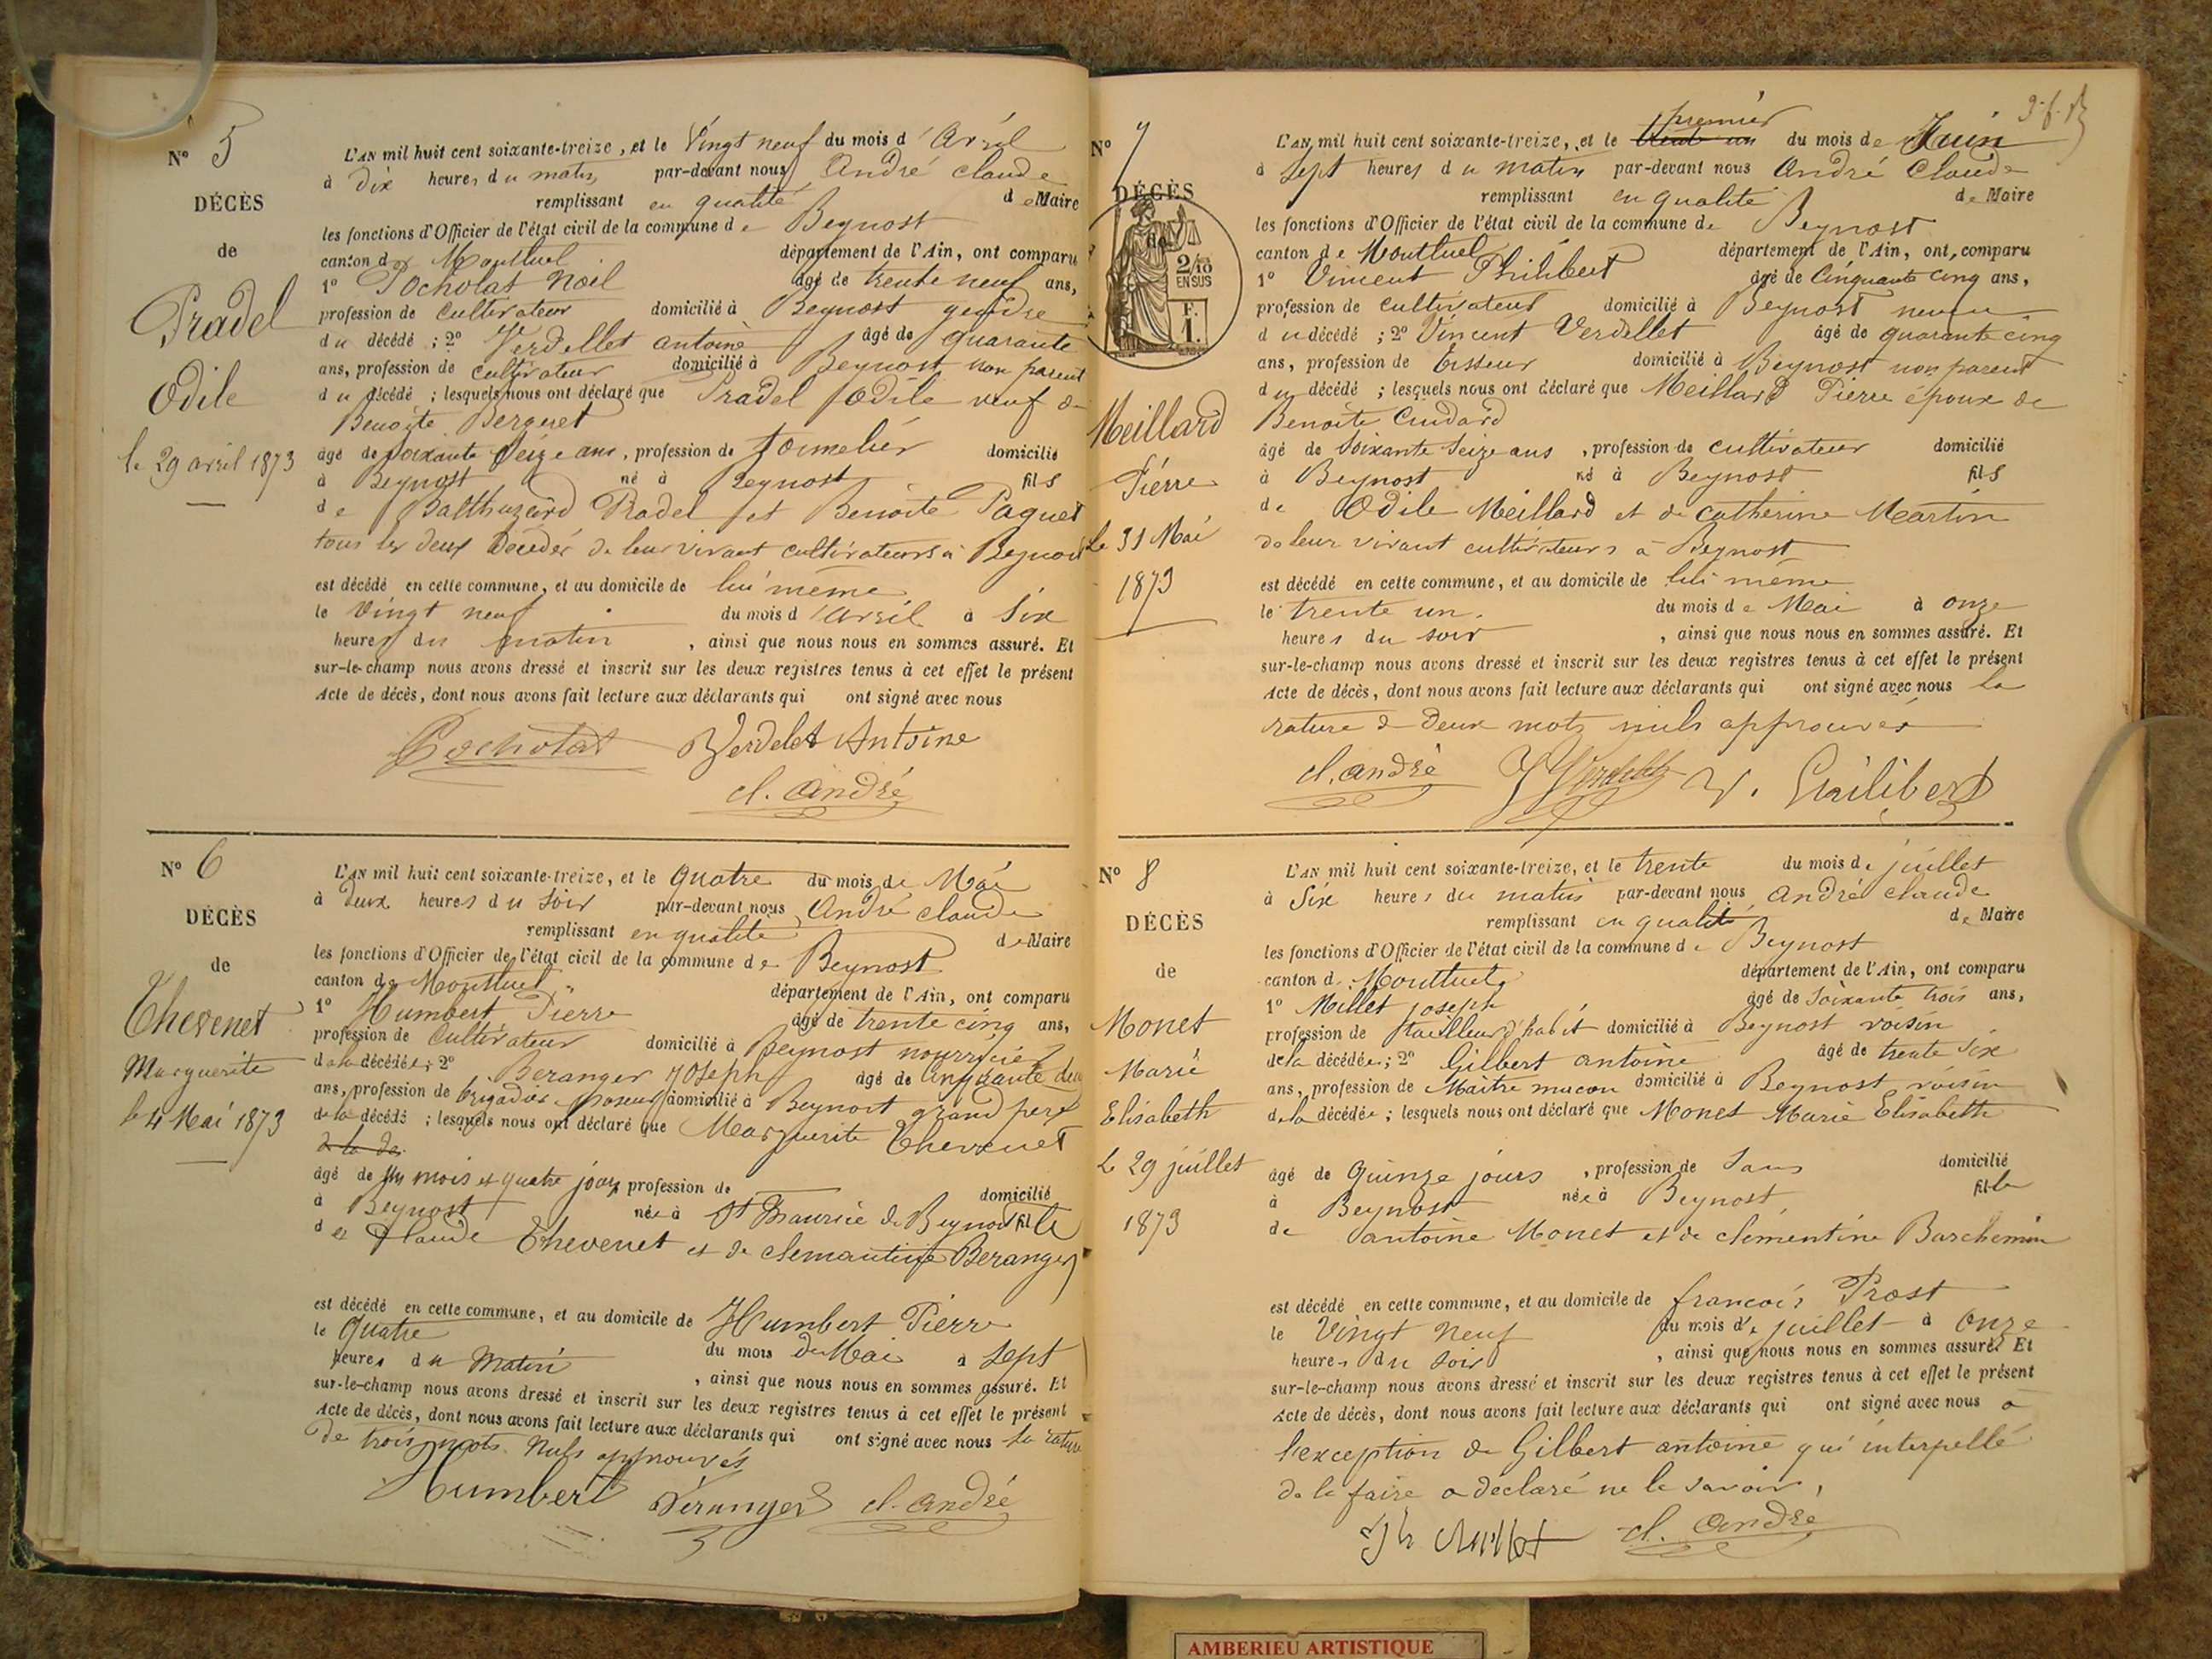 Nº 5
DÉCÈS
de
Pradel
Odile
le 29 avril 1873
L'AN mil huit cent soixante-treize, et le Vingt neuf du mois d'Avril
à dix heures du matin par-devant nous André Claude
remplissant en qualité de Maire
les fonctions d'Officier de l'état civil de la commune de Beynost
canton de Montluel département de l'Ain, ont comparu
1º Pocholat Noël âgé de trente neuf ans,
profession de Cultivateur domicilié à Beynost gendre
du décédé ; 2º Verdellet antoine âgé de quarante
ans, profession de Cultivateur domicilié à Beynost non parent
du décédé ; lesquels nous ont déclaré que Pradel Odile veuf de
Benoite Berguet
âgé de soixante Seize ans, profession de tonnelier domicilié
à Beynost né à Beynost fils
de Balthazard Pradel et Benoite Paquet
tous les deux décédés de leur vivant cultivateurs à Beynost
est décédé en cette commune, et au domicile de lui même
le Vingt neuf du mois d'avril à Six
heures du matin, ainsi que nous nous en sommes assuré. Et
sur-le-champ nous avons dressé et inscrit sur les deux registres tenus à cet effet le présent
Acte de décès, dont nous avons fait lecture aux déclarants qui ont signé avec nous
Pocholat Verdelet Antoine
cl. André
Nº 6
DÉCÈS
de
Thevenet
Marguerite
le 4 Mai 1873
L'AN mil huit cent soixante-treize, et le Quatre du mois de Mai
à deux heures du soir par-devant nous André claude
remplissant en qualité de Maire
les fonctions d'Officier de l'état civil de la commune de Beynost
canton de Montluel département de l'Ain, ont comparu
1º Humbert Pierre âgé de trente cinq ans,
profession de Cultivateur domicilié à Beynost nourricier
de la décédée ; 2º Beranger Joseph âgé de Cinquante deux
ans, profession de brigadier poseur domicilié à Beynost grand père
de la décédé ; lesquels nous ont déclaré que Marguerite Thevenet
de la de
âgé de un mois et quatre jours profession de domicilié
à Beynost née à St Maurice de Beynost fille
de Claude Thevenet et de clemantine Beranger
est décédé en cette commune, et au domicile de Humbert Pierre
le Quatre du mois de Mai à sept
heures du Matin, ainsi que nous nous en sommes assuré. Et
sur-le-champ nous avons dressé et inscrit sur les deux registres tenus à cet effet le présent
Acte de décès, dont nous avons fait lecture aux déclarants qui ont signé avec nous La rature
de trois mots Nuls approuvés
Humbert Béranger cl. André
Nº 7
DÉCÈS
de
2/10
EN SUS
F.
1.
Meillard
Pierre
Le 31 Mai
1873
premier
L'AN mil huit cent soixante-treize, et le trente un du mois de Juin
à Sept heures du matin par-devant nous André Claude
remplissant en qualité de Maire
les fonctions d'Officier de l'état civil de la commune de Beynost
canton de Montluel département de l'Ain, ont comparu
1º Vincent Philibert âgé de Cinquante cinq ans,
profession de Cultivateur domicilié à Beynost neveu
du décédé ; 2º Vincent Verdellet âgé de quarante cinq
ans, profession de tisseur domicilié à Beynost non parent
du décédé ; lesquels nous ont déclaré que Meillard Pierre époux de
Benoite Cudard
âgé de Soixante Seize ans, profession de cultivateur domicilié
à Beynost né à Beynost fils
de Odile Meillard et de catherine Martin
de leur vivant cultivateurs à Beynost
est décédé en cette commune, et au domicile de lui même
le trente un du mois de Mai à onze
heures du soir, ainsi que nous nous en sommes assuré. Et
sur-le-champ nous avons dressé et inscrit sur les deux registres tenus à cet effet le présent
Acte de décès, dont nous avons fait lecture aux déclarants qui ont signé avec nous La
rature de deux mots nuls approuvés
cl. André V Verdellet V. Philibert
Nº 8
DÉCÈS
de
Monet
Marie
Elisabeth
Le 29 juillet
1873
L'AN mil huit cent soixante-treize, et le trente du mois de juillet
à Six heures du matin par-devant nous André claude
remplissant en qualité de Maire
les fonctions d'Officier de l'état civil de la commune de Beynost
canton de Montluel département de l'Ain, ont comparu
1º Millet joseph âgé de soixante trois ans,
profession de tailleur d'habit domicilié à Beynost voisin
de la décédée ; 2º Gilbert antoine âgé de trente Six
ans, profession de Maitre maçon domicilié à Beynost voisin
de la décédée ; lesquels nous ont déclaré que Monet Marie Elisabeth
âgé de Quinze jours, profession de Sans domicilié
à Beynost née à Beynost fille
de antoine Monet et de clémentine Barchemin
est décédé en cette commune, et au domicile de françois Prost
le Vingt Neuf du mois de juillet à Onze
heures du Soir, ainsi que nous nous en sommes assuré. Et
sur-le-champ nous avons dressé et inscrit sur les deux registres tenus à cet effet le présent
Acte de décès, dont nous avons fait lecture aux déclarants qui ont signé avec nous a
l'exception de Gilbert antoine qui interpellé
de le faire a déclaré ne le savoir,
Jh Millet cl. André
AMBERIEU ARTISTIQUE